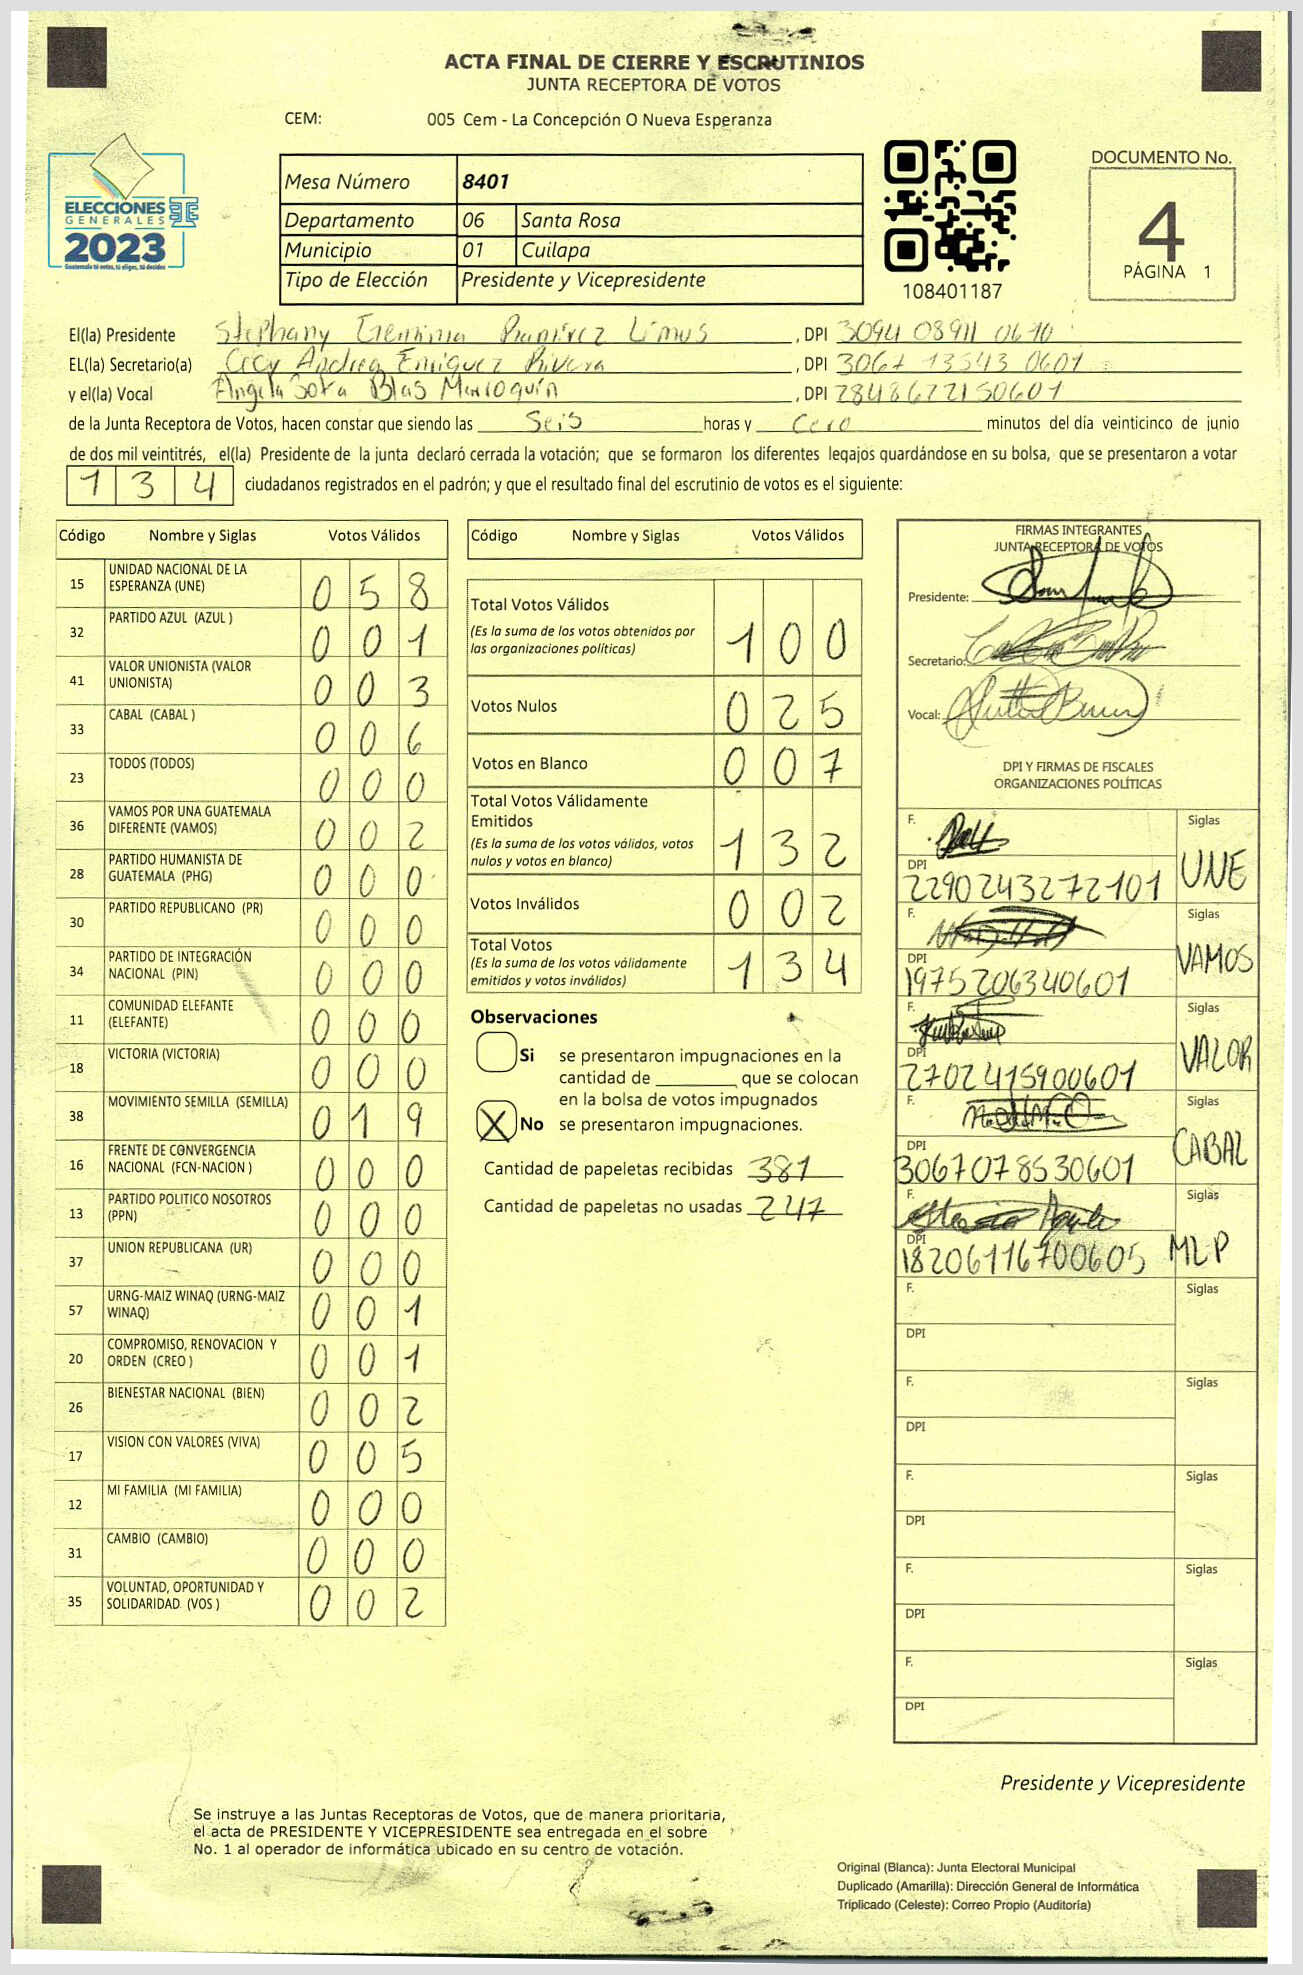 ACTA FINAL DE CIERRE Y ESCRUTINIOS
JUNTA RECEPTORA DE VOTOS
CEM: 005 Cem - La Concepción O Nueva Esperanza
ELECCIONES
GENERALES
2023
Guatemala tú votas, tú eliges, tú decides
Mesa Número 8401
Departamento 06 Santa Rosa
Municipio 01 Cuilapa
Tipo de Elección Presidente y Vicepresidente
108401187
DOCUMENTO No.
4
PÁGINA 1
El(la) Presidente Stephany Ramírez Limus , DPI 3094 08911 0610
EL(la) Secretario(a) Andrea Enriquez Rivera , DPI 3067 13543 0601
y el(la) Vocal Angela Sofia Blas Marroquín , DPI 2848622150601
de la Junta Receptora de Votos, hacen constar que siendo las Seis horas y Cero minutos del día veinticinco de junio
de dos mil veintitrés, el(la) Presidente de la junta declaró cerrada la votación; que se formaron los diferentes legajos guardándose en su bolsa, que se presentaron a votar
1 3 4 ciudadanos registrados en el padrón; y que el resultado final del escrutinio de votos es el siguiente:
Código Nombre y Siglas Votos Válidos
15 UNIDAD NACIONAL DE LA ESPERANZA (UNE) 0 5 8
32 PARTIDO AZUL (AZUL ) 0 0 1
41 VALOR UNIONISTA (VALOR UNIONISTA) 0 0 3
33 CABAL (CABAL ) 0 0 6
23 TODOS (TODOS) 0 0 0
36 VAMOS POR UNA GUATEMALA DIFERENTE (VAMOS) 0 0 2
28 PARTIDO HUMANISTA DE GUATEMALA (PHG) 0 0 0
30 PARTIDO REPUBLICANO (PR) 0 0 0
34 PARTIDO DE INTEGRACIÓN NACIONAL (PIN) 0 0 0
11 COMUNIDAD ELEFANTE (ELEFANTE) 0 0 0
18 VICTORIA (VICTORIA) 0 0 0
38 MOVIMIENTO SEMILLA (SEMILLA) 0 1 9
16 FRENTE DE CONVERGENCIA NACIONAL (FCN-NACION ) 0 0 0
13 PARTIDO POLITICO NOSOTROS (PPN) 0 0 0
37 UNION REPUBLICANA (UR) 0 0 0
57 URNG-MAIZ WINAQ (URNG-MAIZ WINAQ) 0 0 1
20 COMPROMISO, RENOVACION Y ORDEN (CREO ) 0 0 1
26 BIENESTAR NACIONAL (BIEN) 0 0 2
17 VISION CON VALORES (VIVA) 0 0 5
12 MI FAMILIA (MI FAMILIA) 0 0 0
31 CAMBIO (CAMBIO) 0 0 0
35 VOLUNTAD, OPORTUNIDAD Y SOLIDARIDAD (VOS ) 0 0 2
Código Nombre y Siglas Votos Válidos
Total Votos Válidos 1 0 0
(Es la suma de los votos obtenidos por
las organizaciones políticas)
Votos Nulos 0 2 5
Votos en Blanco 0 0 7
Total Votos Válidamente
Emitidos 1 3 2
(Es la suma de los votos válidos, votos
nulos y votos en blanco)
Votos Inválidos 0 0 2
Total Votos 1 3 4
(Es la suma de los votos válidamente
emitidos y votos inválidos)
Observaciones
Si se presentaron impugnaciones en la
cantidad de ________ que se colocan
en la bolsa de votos impugnados
X No se presentaron impugnaciones.
Cantidad de papeletas recibidas 381
Cantidad de papeletas no usadas 247
FIRMAS INTEGRANTES
JUNTA RECEPTORA DE VOTOS
Presidente:
Secretario:
Vocal:
DPI Y FIRMAS DE FISCALES
ORGANIZACIONES POLÍTICAS
F. Siglas
DPI 2290243272101 UNE
F. Siglas
DPI 1975206340601 VAMOS
F. Siglas
DPI 2702415900601 VALOR
F. Siglas
DPI 3067078530601 CABAL
F. Siglas
DPI 1820611670605 MLP
F. Siglas
DPI
F. Siglas
DPI
F. Siglas
DPI
F. Siglas
DPI
F. Siglas
DPI
Presidente y Vicepresidente
Se instruye a las Juntas Receptoras de Votos, que de manera prioritaria,
el acta de PRESIDENTE Y VICEPRESIDENTE sea entregada en el sobre
No. 1 al operador de informática ubicado en su centro de votación.
Original (Blanca): Junta Electoral Municipal
Duplicado (Amarilla): Dirección General de Informática
Triplicado (Celeste): Correo Propio (Auditoría)